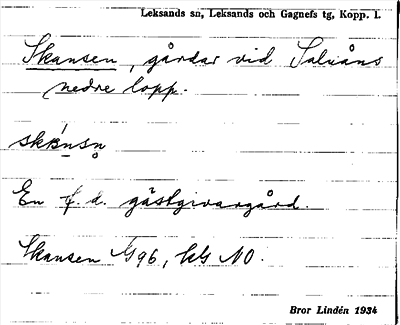 Leksands sn, Leksands och Gagnefs tg, Kopp. l.
Skansen, gårdar vid Saluåns
nedre lopp.
En f. d. gästgivargård.
Skansen
Bror Lindén 1934